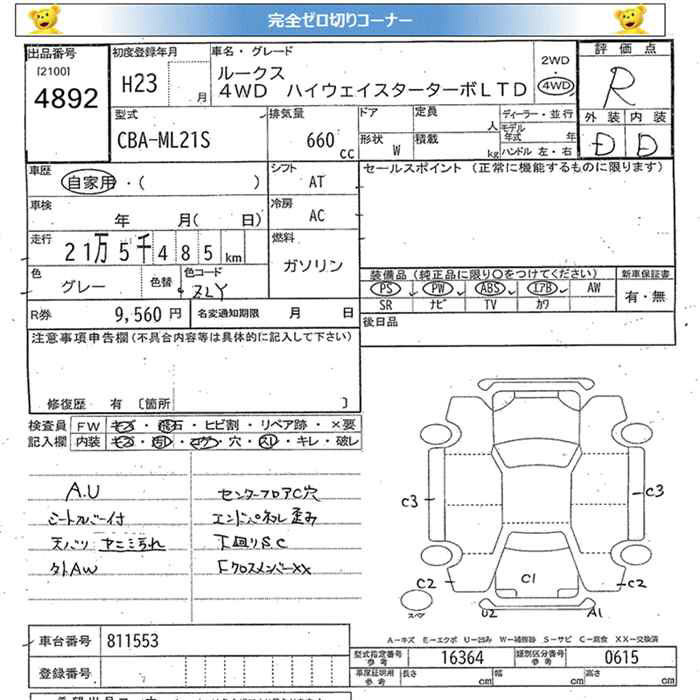 完全ゼロ切りコーナー
出品番号
[2100]
4892
初度登録年月
H23 月
車名・グレード
ルークス
4WD ハイウェイスターターボLTD
2WD
・
4WD
評価点
R
外装 内装
D D
型式
CBA-ML21S
排気量
660 cc
ドア
形状 W
定員 人
積載 kg
ディーラー・並行
モデル年式 年
ハンドル 左・右
車歴
自家用・( )
シフト
AT
セールスポイント (正常に機能するものに限ります)
車検
年 月( 日)
冷房
AC
走行
21万5千485km
燃料
ガソリン
色
グレー
色替
色コード
ZLY
装備品(純正品に限り○をつけてください)
PS PW ABS エアB AW
SR ナビ TV カワ
新車保証書
有・無
R券 9,560 円
名変通知期限 月 日
後日品
注意事項申告欄(不具合内容等は具体的に記入して下さい)
修復歴 有 〔箇所 〕
検査員記入欄
FW キズ・飛石・ヒビ割・リペア跡・×要
内装 キズ・汚れ・コゲ・穴・スレ・キレ・破レ
A.U
シートカバー付
天バリ ヤニ汚れ
外AW
センターフロアC穴
エンドパネル歪み
下廻りSC
Fクロスメンバーxx
C3
C3
C2
C1
C2
スペア
U2
A1
A-キズ E-エクボ U-凹み W-補修跡 S-サビ C-腐食 XX-交換済
車台番号 811553
登録番号
型式指定番号
参考
16364
類別区分番号
参考
0615
車庫証明用
参考
長さ cm
幅 cm
高さ cm